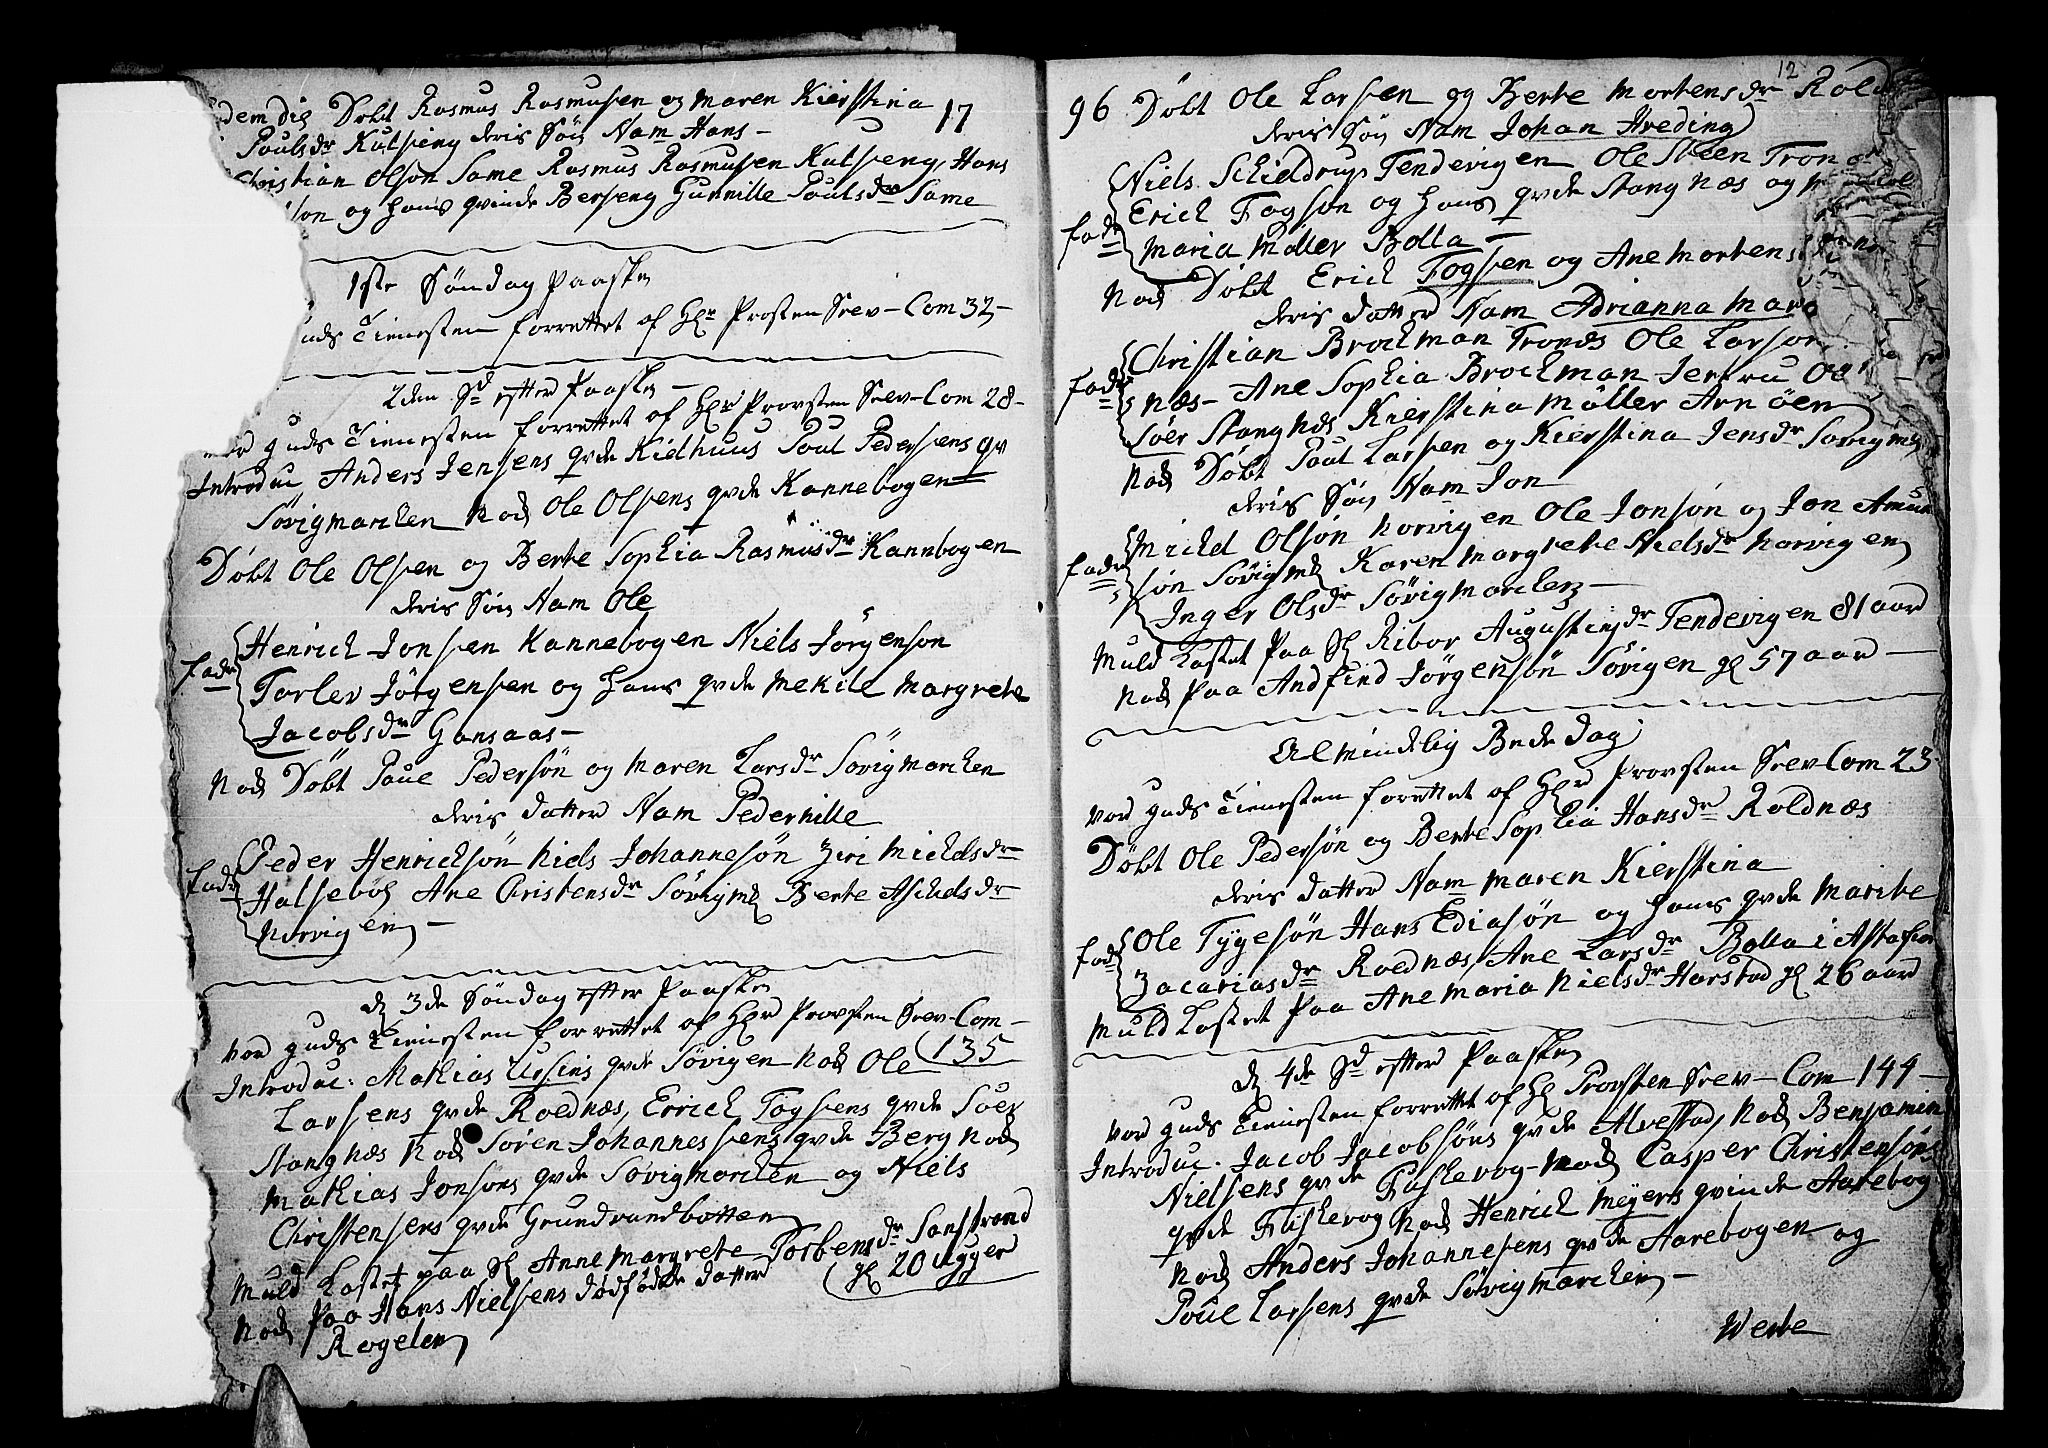 dem die Döbt Rasmus Rasmusen og Maren Kierstina 17
Poulsdr Kulseng deris Søn Nam Hans -
Christian Olson Same Rasmus Rasmusen Kulseng, Hans
son og hans qvinde Berseng Gunnille Poulsdr Same
1ste Søndag Paaske
uds Tienesten forrettet af Hr Prosten Srev - Com 32 -
2den Sd efter Paaske -
guds Tienesten forrettet af Hr Provsten Srev - Com 28 -
Introduc Anders Jensens qvde Kielhuus Poul Pedersens qv
Søvigmarchen Nok Ole Olsens qvde Kannebogen
Döbt Ole Olsen og Berte Sophia Rasmusdr Kannbogen
deris Søn Nam Ole
fadr Henrich Jonsen Kannebogen Niels Jörgenson
Torlev Jörgensen og hans qvde Mekile Margrete
Jacobsdr Gansaas -
Nok Döbt Poue Pedersön og Maren Larsdr Sövigmarchen
deris datter Nam Pedernille
fadr Peder Henrichsön Niels Johannesön Ziri Michelsdr
Halsebö Ane Christensdr Sövigm Berte Aschelsdr
Norvigen -
d 3de Söndag efter Paaske
Vor guds Tienesten forrettet af Hr Provsten Srev - Com -
135
Introduc: Mathias Ursins qvde Sövigen Nok Ole
Larsens qvde Roldnæs, Errich Togsens qvde Soer
Stangnæs Nok Sören Johannessens qvde Berg Nok
Mathias Jonsons qvde Sövigmarchen og Niels
Christensens qvde Grundvandbotten
Muld Kastet paa Sl Anne Margrete Torbensdr Sanstrand
gl 20 Uger
Nok Paa Hans Nielsens dödfödde datter
Rogelen
12
96 Döbt Ole Larsen og Berte Mortensdr Rold
deris Søn Nam Johan Hveding
Niels Schieldrup Tendevigen Ole Steen Tron
fadr Erich Togson og hans qvde Stangnæs og
Maria Möller Bolla -
Nok Döbt Erich Togsen og Ane Mortens
deris datter Nam Adrianna Mar
Christian Brochman Tronæs Ole Larson
fadr næs - Ane Sophia Brochman Jertru
Söer Stangnæs Kierstina Möller Arnöen
Nok Döbt Poul Larsen og Kierstina Jensdr Sovigm
deris Søn Nam Jon
Michel Olsön Norvigen Ole Jonsön og Jon Amun
fadr sön Sövigm Karen Margrete Nielsdr Norvigen
Inger Olsdr Sövigmarchen -
Muld Kastet Paa Sl Ribor Augustinjdr Tendevigen 81 aar
Nok Paa Andfind Jörgensön Sövigen gl 57 aar -
Almindelig Bededag
Vor guds Tienesten forettet af Hr Provsten Srev Com 23 -
Döbt Ole Pedersön og Berte Sophia Hansdr Roldnæs
deris datter Nam Maren Kierstina
fadr Ole Tygesön Hans Ediasön og hans qvde Marite
Zacariasdr Roldnæs, Ane Larsdr Bolla i Astafior
Muld Kastet Paa Ane Maria Nielsdr Harstad gl 26 aar
d 4de Sd efter Paaske
Vor guds Tienesten forrettet af Hr Provsten Srev - Com 144 -
Introduc: Jacob Jacobsöns qvde Alvestad, Nok Benjamin
Nielsens qvde Faskevog - Nok Casper Christensöns
qvde Fiskevog Nok Henrich Meyers qvinde Aarebog
Nok Anders Johannesens qvde Aarebogen og
Poue Larsens qvde Sövigmarchen -
Werte